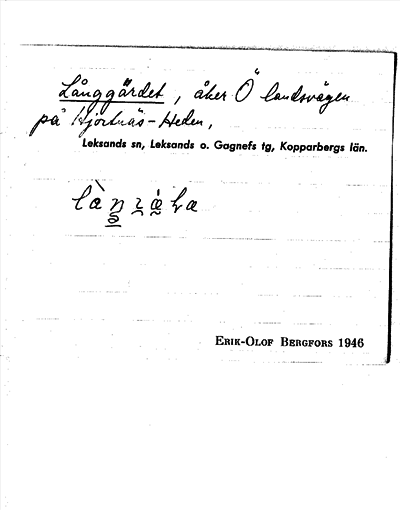 Långgärdet, åker Ö landsvägen
på Hjortnäs-Heden,
Leksands sn, Leksands o. Gagnefs tg, Kopparbergs län.
ERIK-OLOF BERGFORS 1946